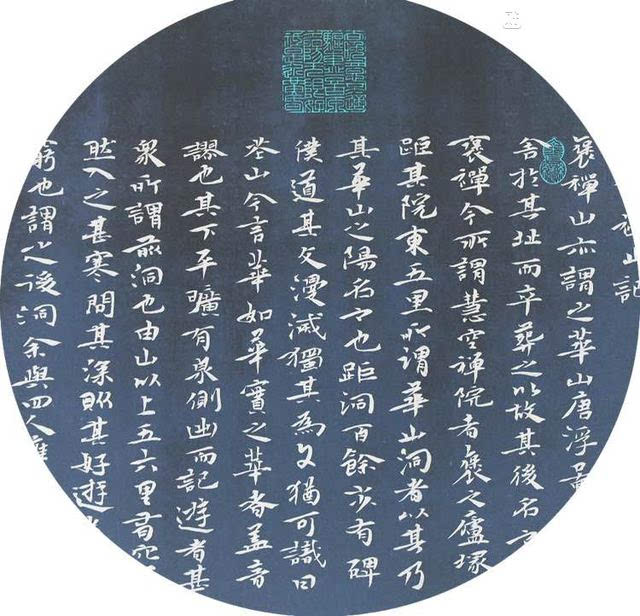 禪山記
褒禪山亦謂之華山唐浮
舍於其址而卒葬之以故其後名之
褒禪今所謂慧空禪院者褒之廬塚
距其院東五里所謂華山洞者以其乃
其華山之陽名之也距洞百餘步有碑
僕道其文漫滅獨其為文猶可識曰
花山今言華如華實之華者蓋音
謬也其下平曠有泉側出而記遊者甚
衆所謂前洞也由山以上五六里有穴
然入之甚寒問其深則其好遊
窮也謂之後洞余與四人擁